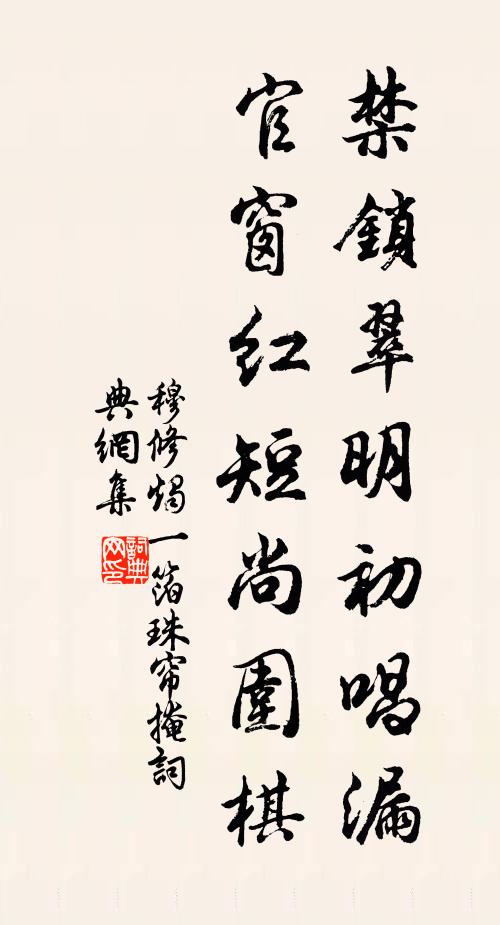 禁鎖翠明初唱漏
官窗紅短尚圍棋
穆修燭一箔珠帘掩詞
典網集
詞典
网印